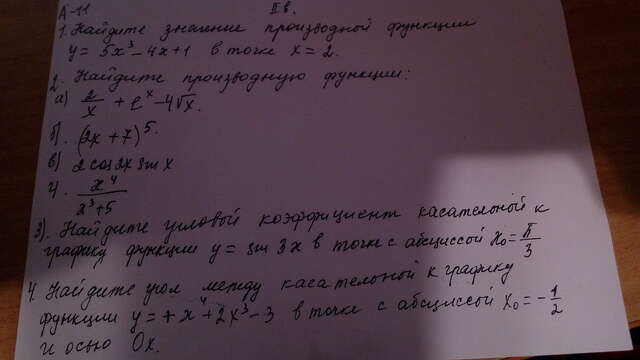 А-11 II в.
1. Найдите значение производной функции
y = 5x³ - 4x + 1 в точке x = 2.
2. Найдите производную функции:
а) 2/x + e^x - 4√x.
б). (2x + 7)⁵.
в) 2 cos 2x sin x
г). x⁴/(x³+5)
3). Найдите угловой коэффициент касательной к
графику функции y = sin 3x в точке с абсциссой x₀ = π/3
4. Найдите угол между касательной к графику
функции y = + x⁴ + 2x³ - 3 в точке с абсциссой x₀ = -1/2
и осью Ox.